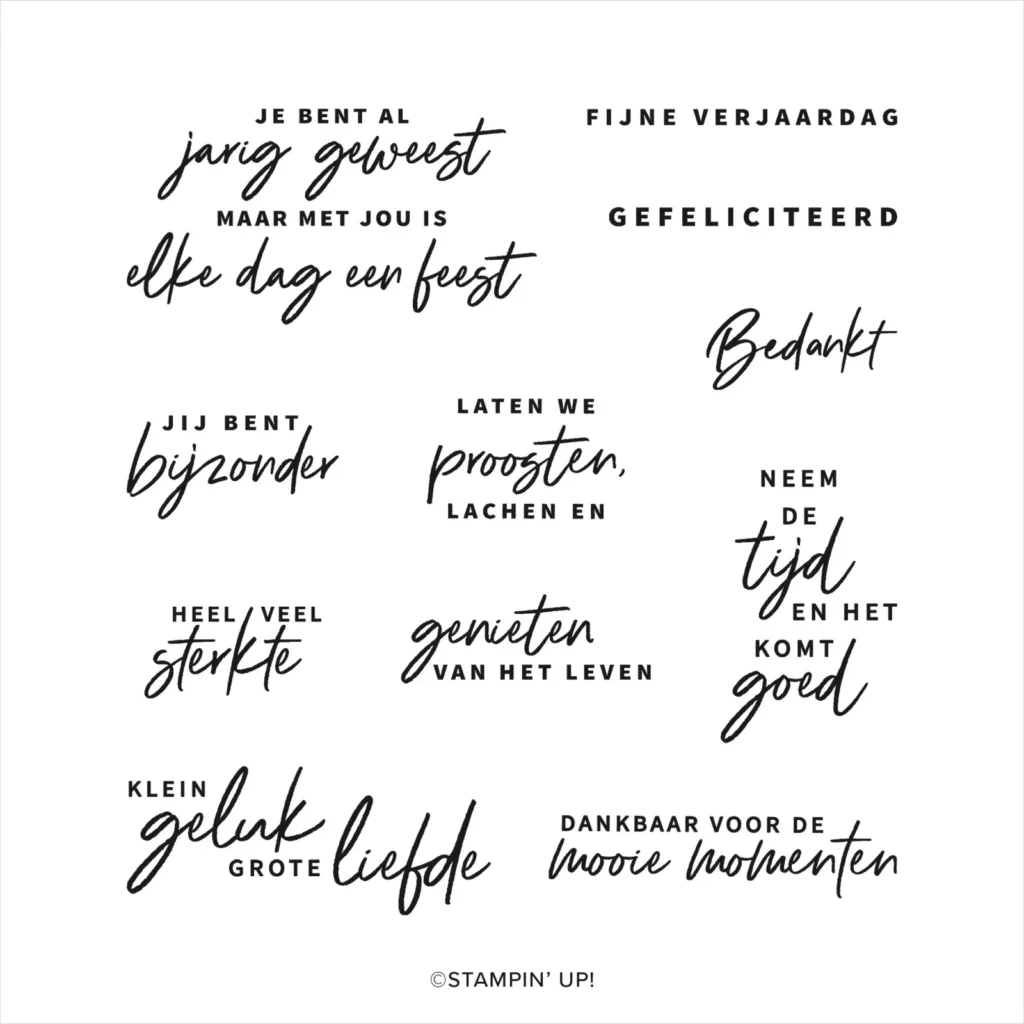 JE BENT AL
jarig geweest
MAAR MET JOU IS
elke dag een feest
FIJNE VERJAARDAG
GEFELICITEERD
Bedankt
JIJ BENT
bijzonder
LATEN WE
proosten,
LACHEN EN
genieten
VAN HET LEVEN
NEEM
DE
tijd
EN HET
KOMT
goed
HEEL VEEL
sterkte
KLEIN
geluk
GROTE
liefde
DANKBAAR VOOR DE
mooie momenten
©STAMPIN' UP!